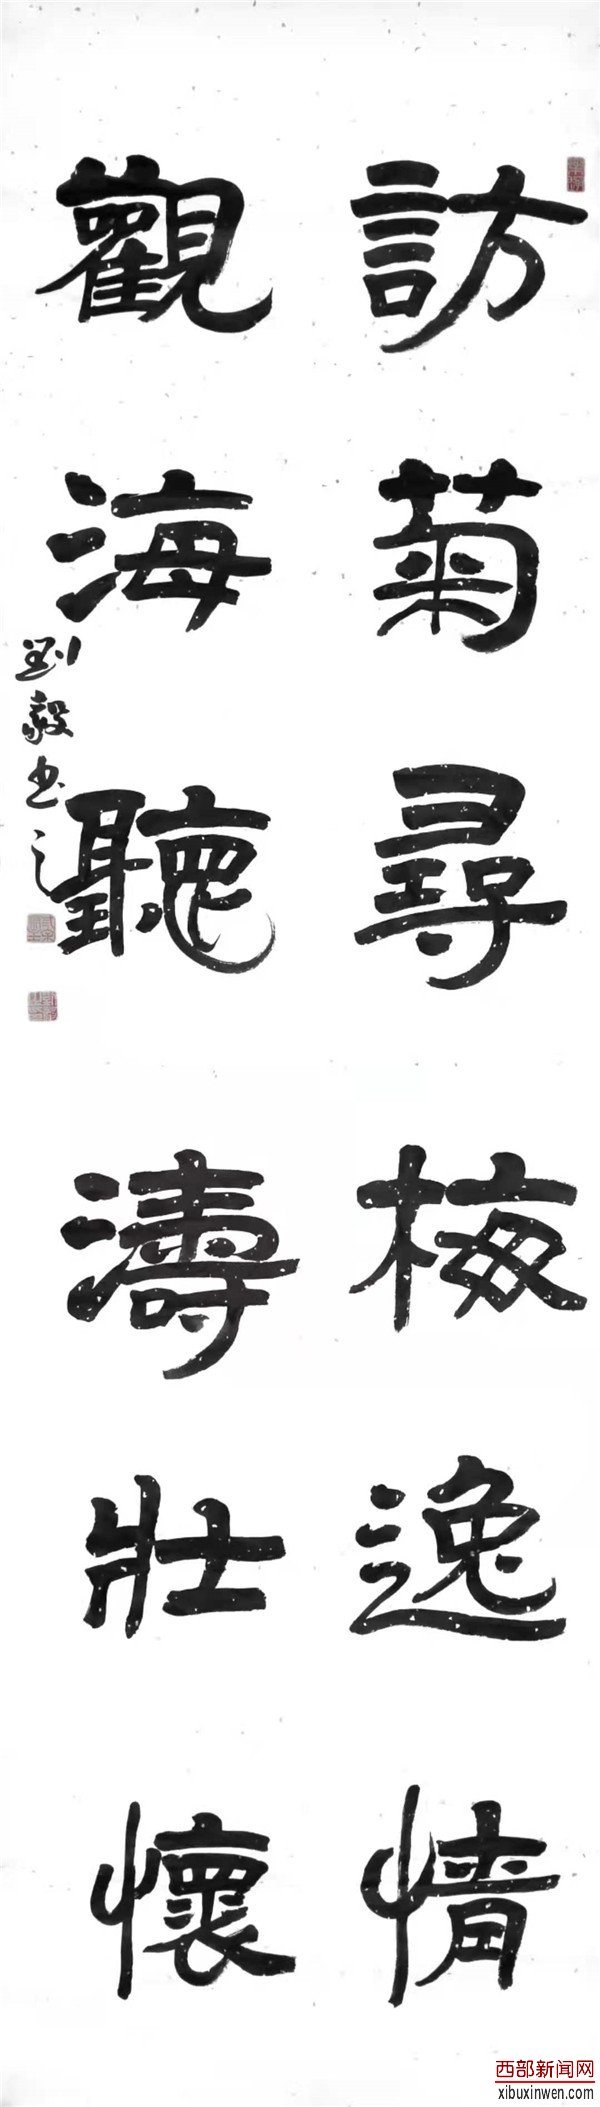 訪菊尋梅逸情
觀海聽濤壯懷
劉毅书之
西部新闻网
xibuxinwen.com